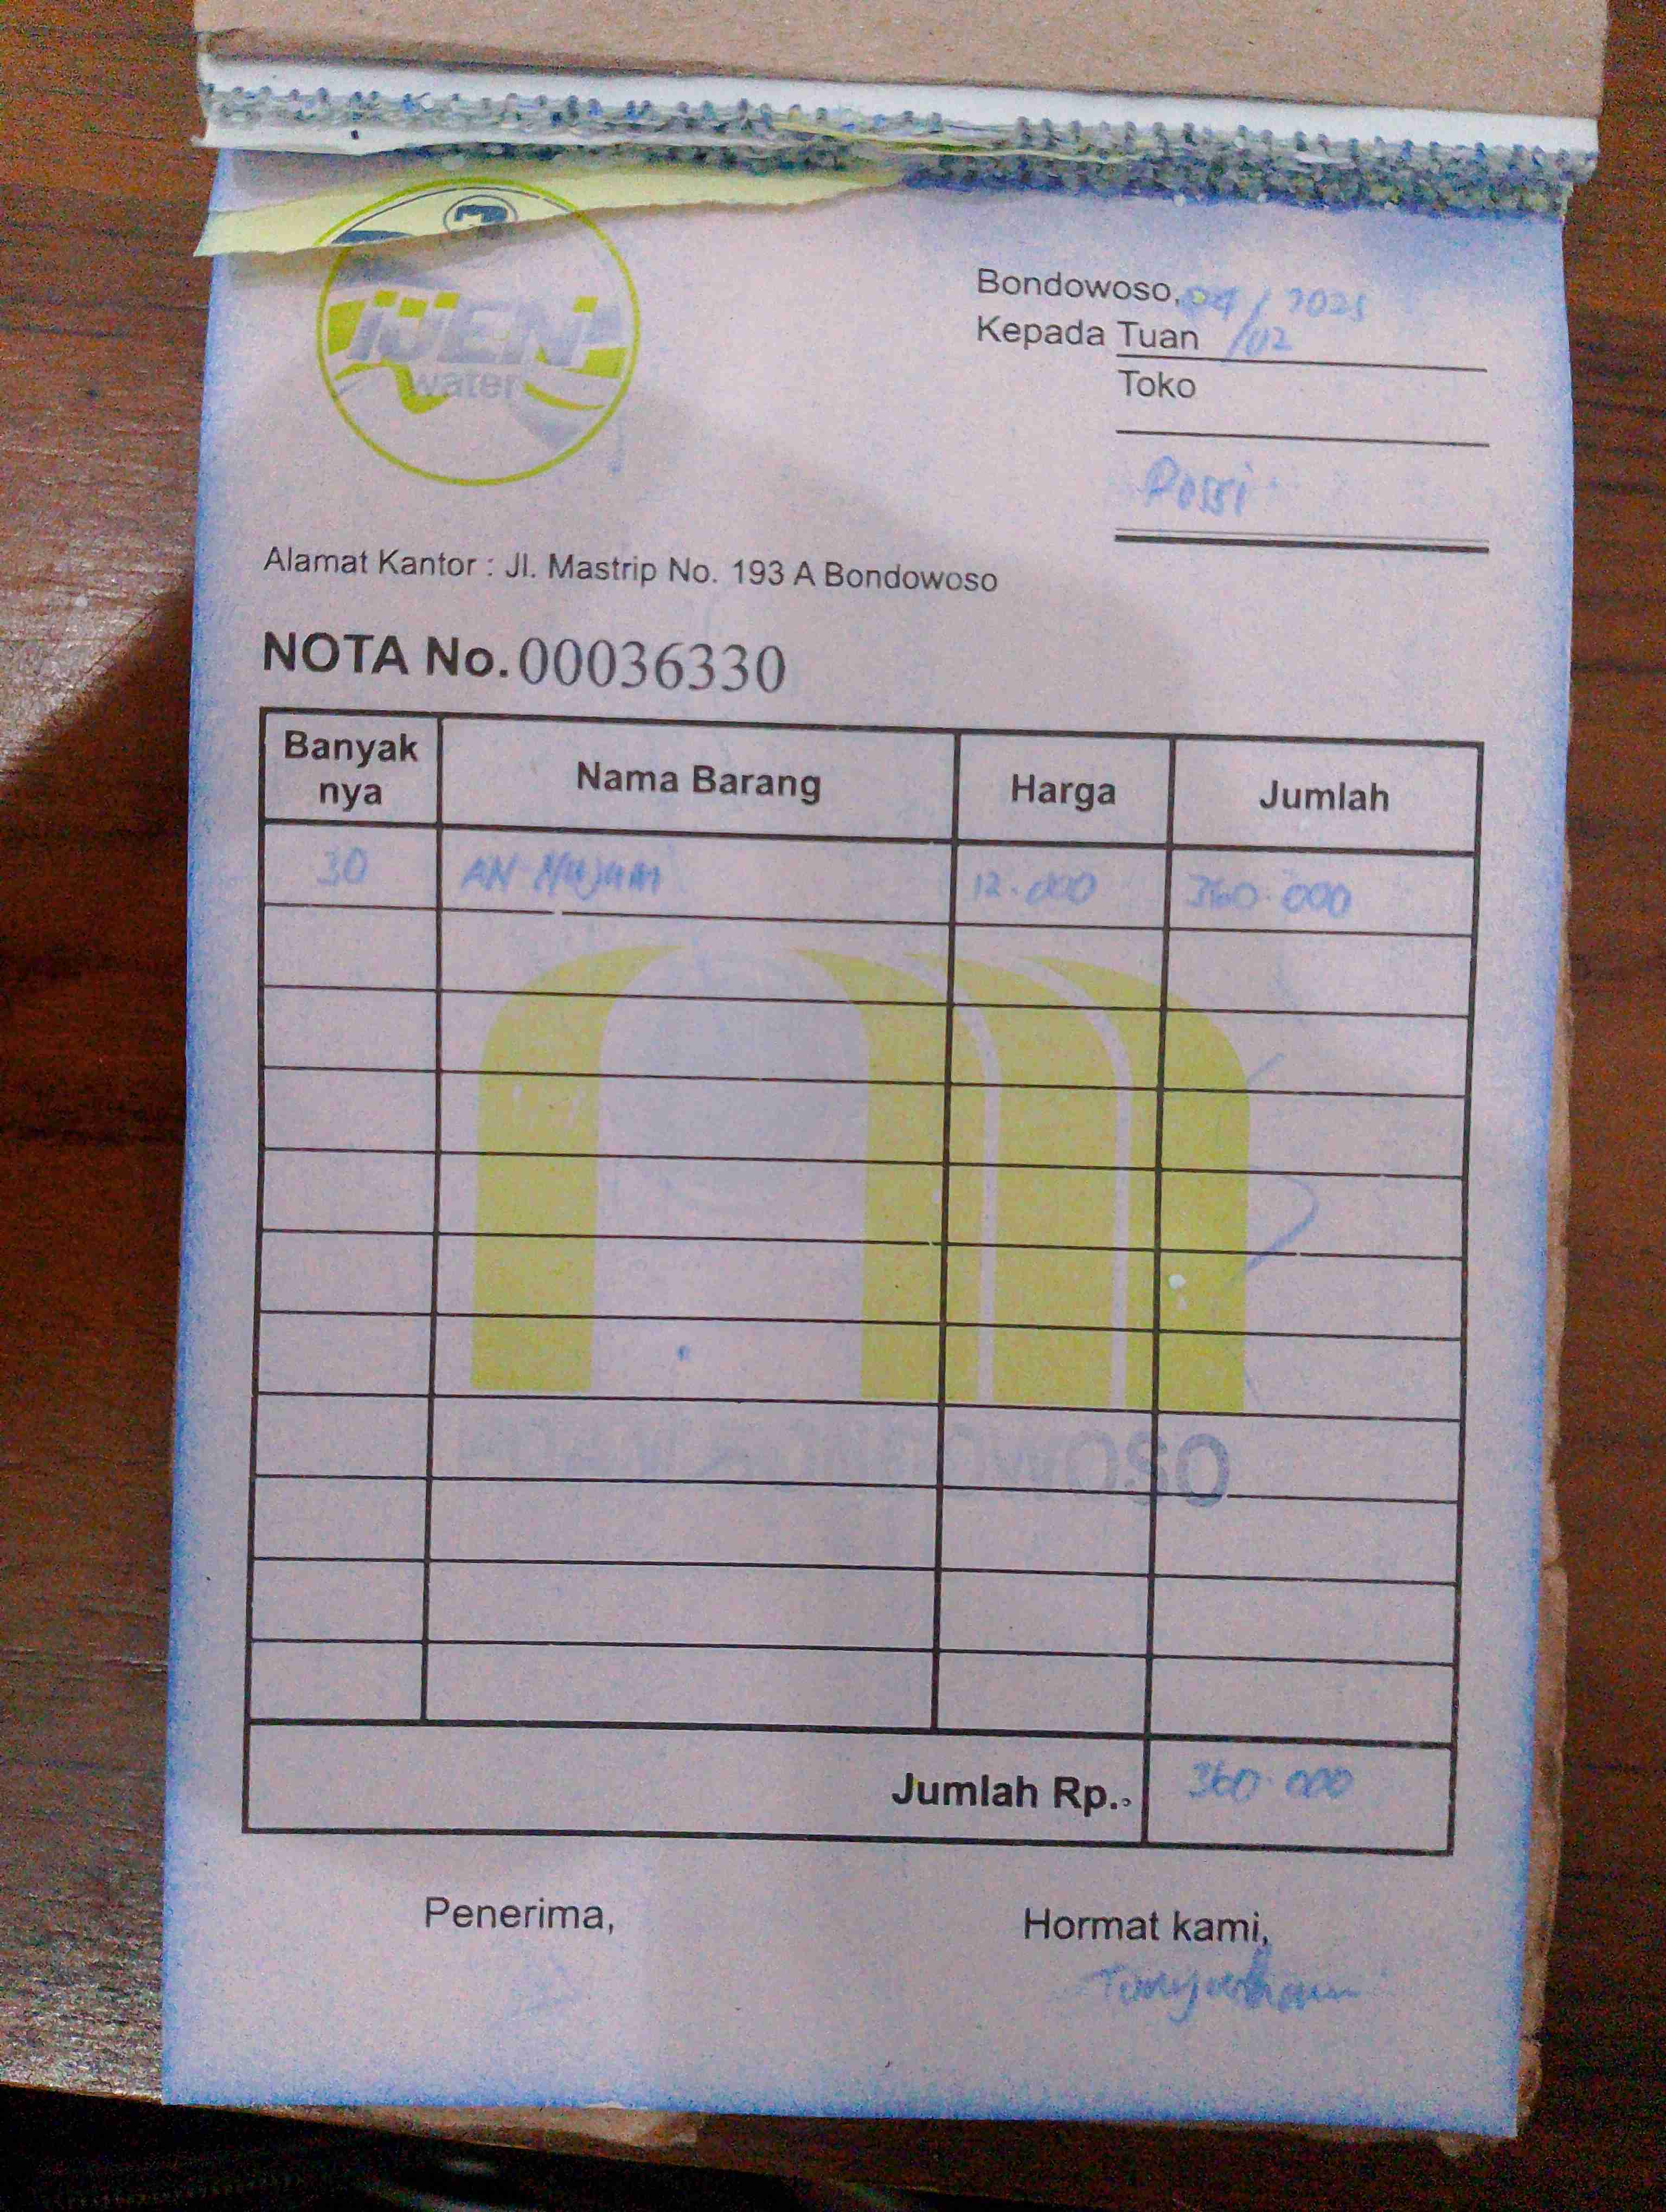 IJEN
water
Bondowoso, 04/02/2025
Kepada Tuan
Toko
Rossi
Alamat Kantor : Jl. Mastrip No. 193 A Bondowoso
NOTA No. 00036330
Banyak nya Nama Barang Harga Jumlah
30 AN NUJUM 12.000 360.000
Jumlah Rp. 360.000
Penerima, Hormat kami,